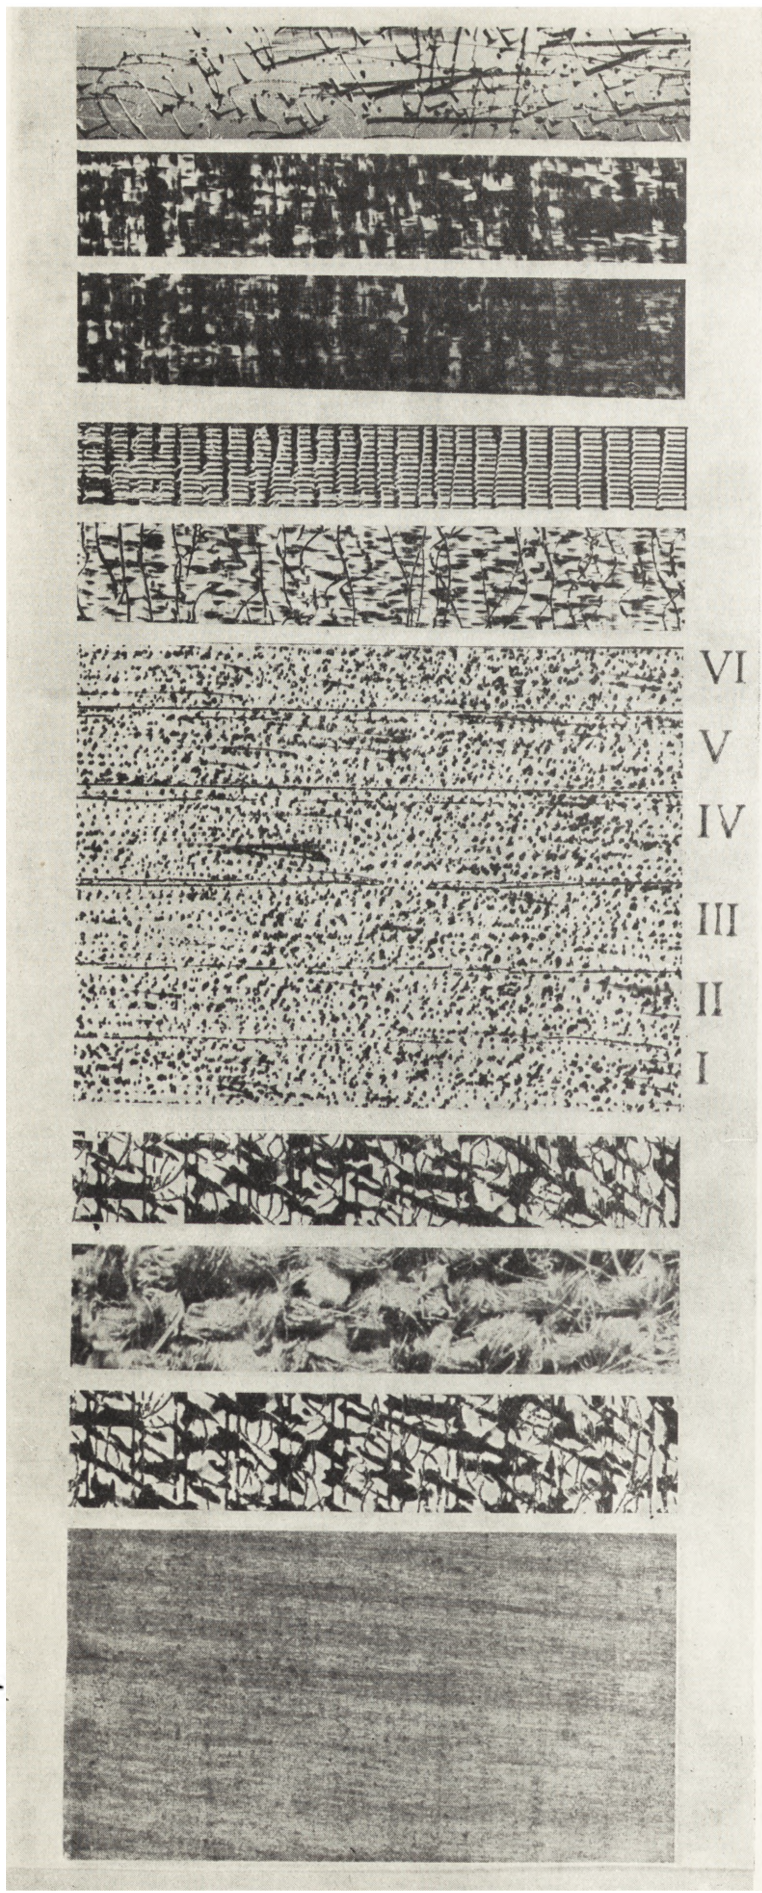 VI
V
IV
III
II
I